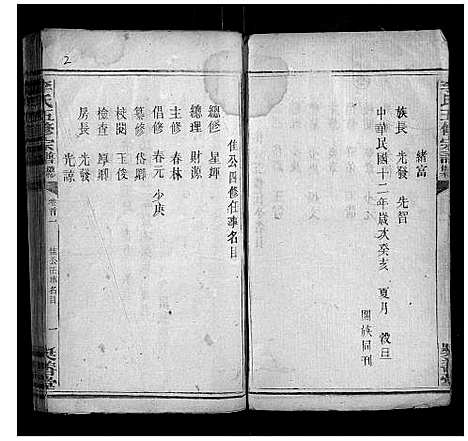 緒富
族長 光發 先智
中華民國十二年歲次癸亥 夏月 穀旦
闔族同刊
佳公四修任事名目
總裁 星輝
總理 財源
主修 春林
倡修 春元 少庚
纂修 岱卿
校閱 王俊
檢查 厚卿
房長 光發
光諒
李氏五修宗譜
卷首一
佳公任事名目
一
2